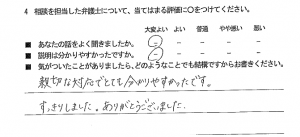 4 相談を担当した弁護士について、当てはまる評価に○をつけてください。
大変よい よい 普通 やや悪い 悪い
■ あなたの話をよく聞きましたか。
■ 説明は分かりやすかったですか。
■ 気がついたことがありましたら、どのようなことでも結構ですからお書きください。
親切な対応でとても分かりやすかったです。
すっきりしました。ありがとうございました。